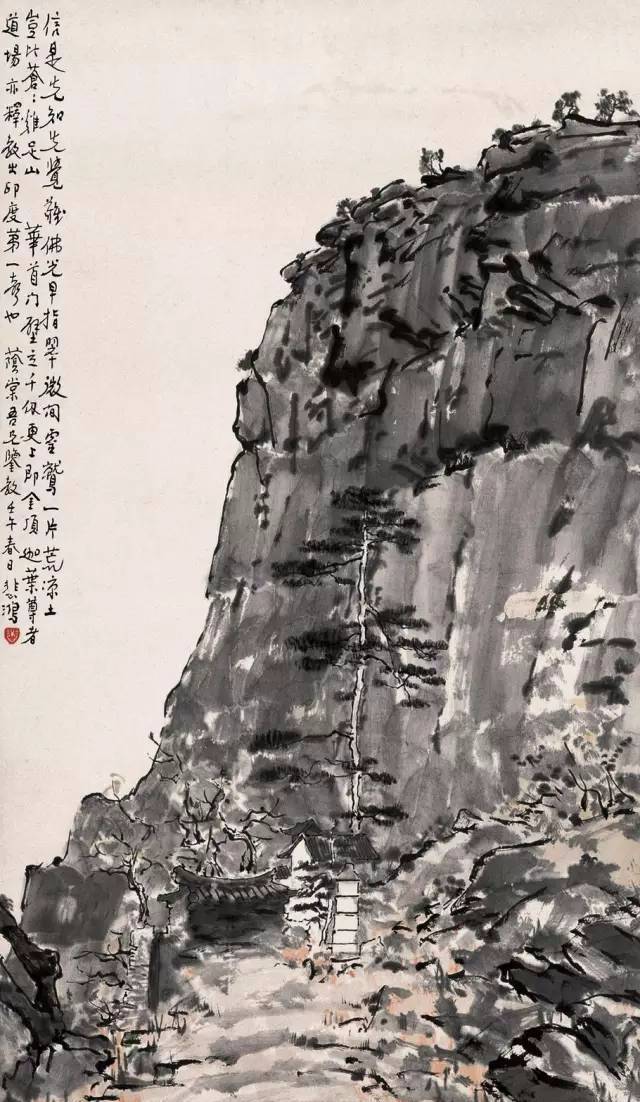 信是先知先覺佛光早指翠微間靈鷲一片荒凉土
豈比蒼〻雞足山 華首門壁立千仞更上即金頂迦葉尊者
道場亦釋教出印度第一也 蔭棠吾兄鑒教壬午春日悲鴻